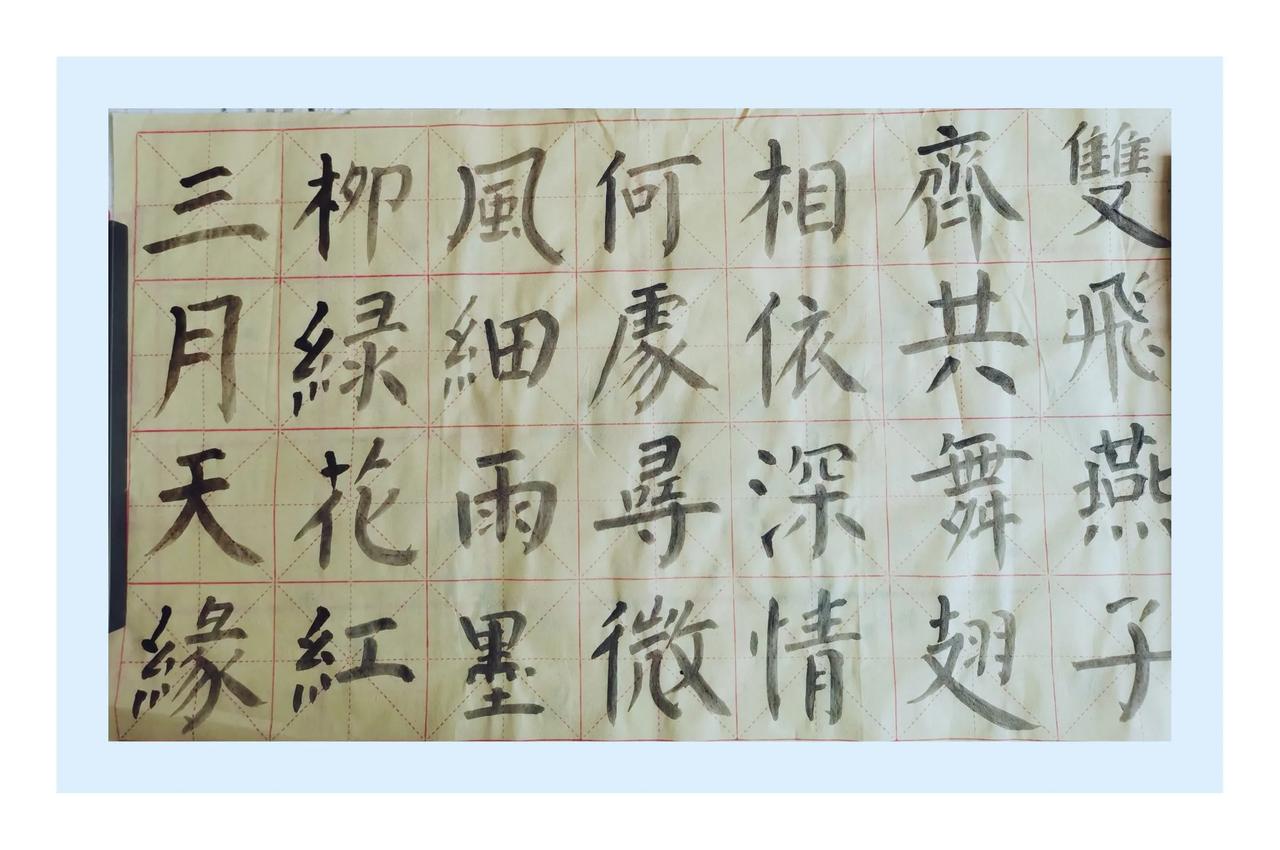 雙飛燕子
齊共舞翅
相依深情
何處尋微
風細雨墨
柳緑花紅
三月天緣